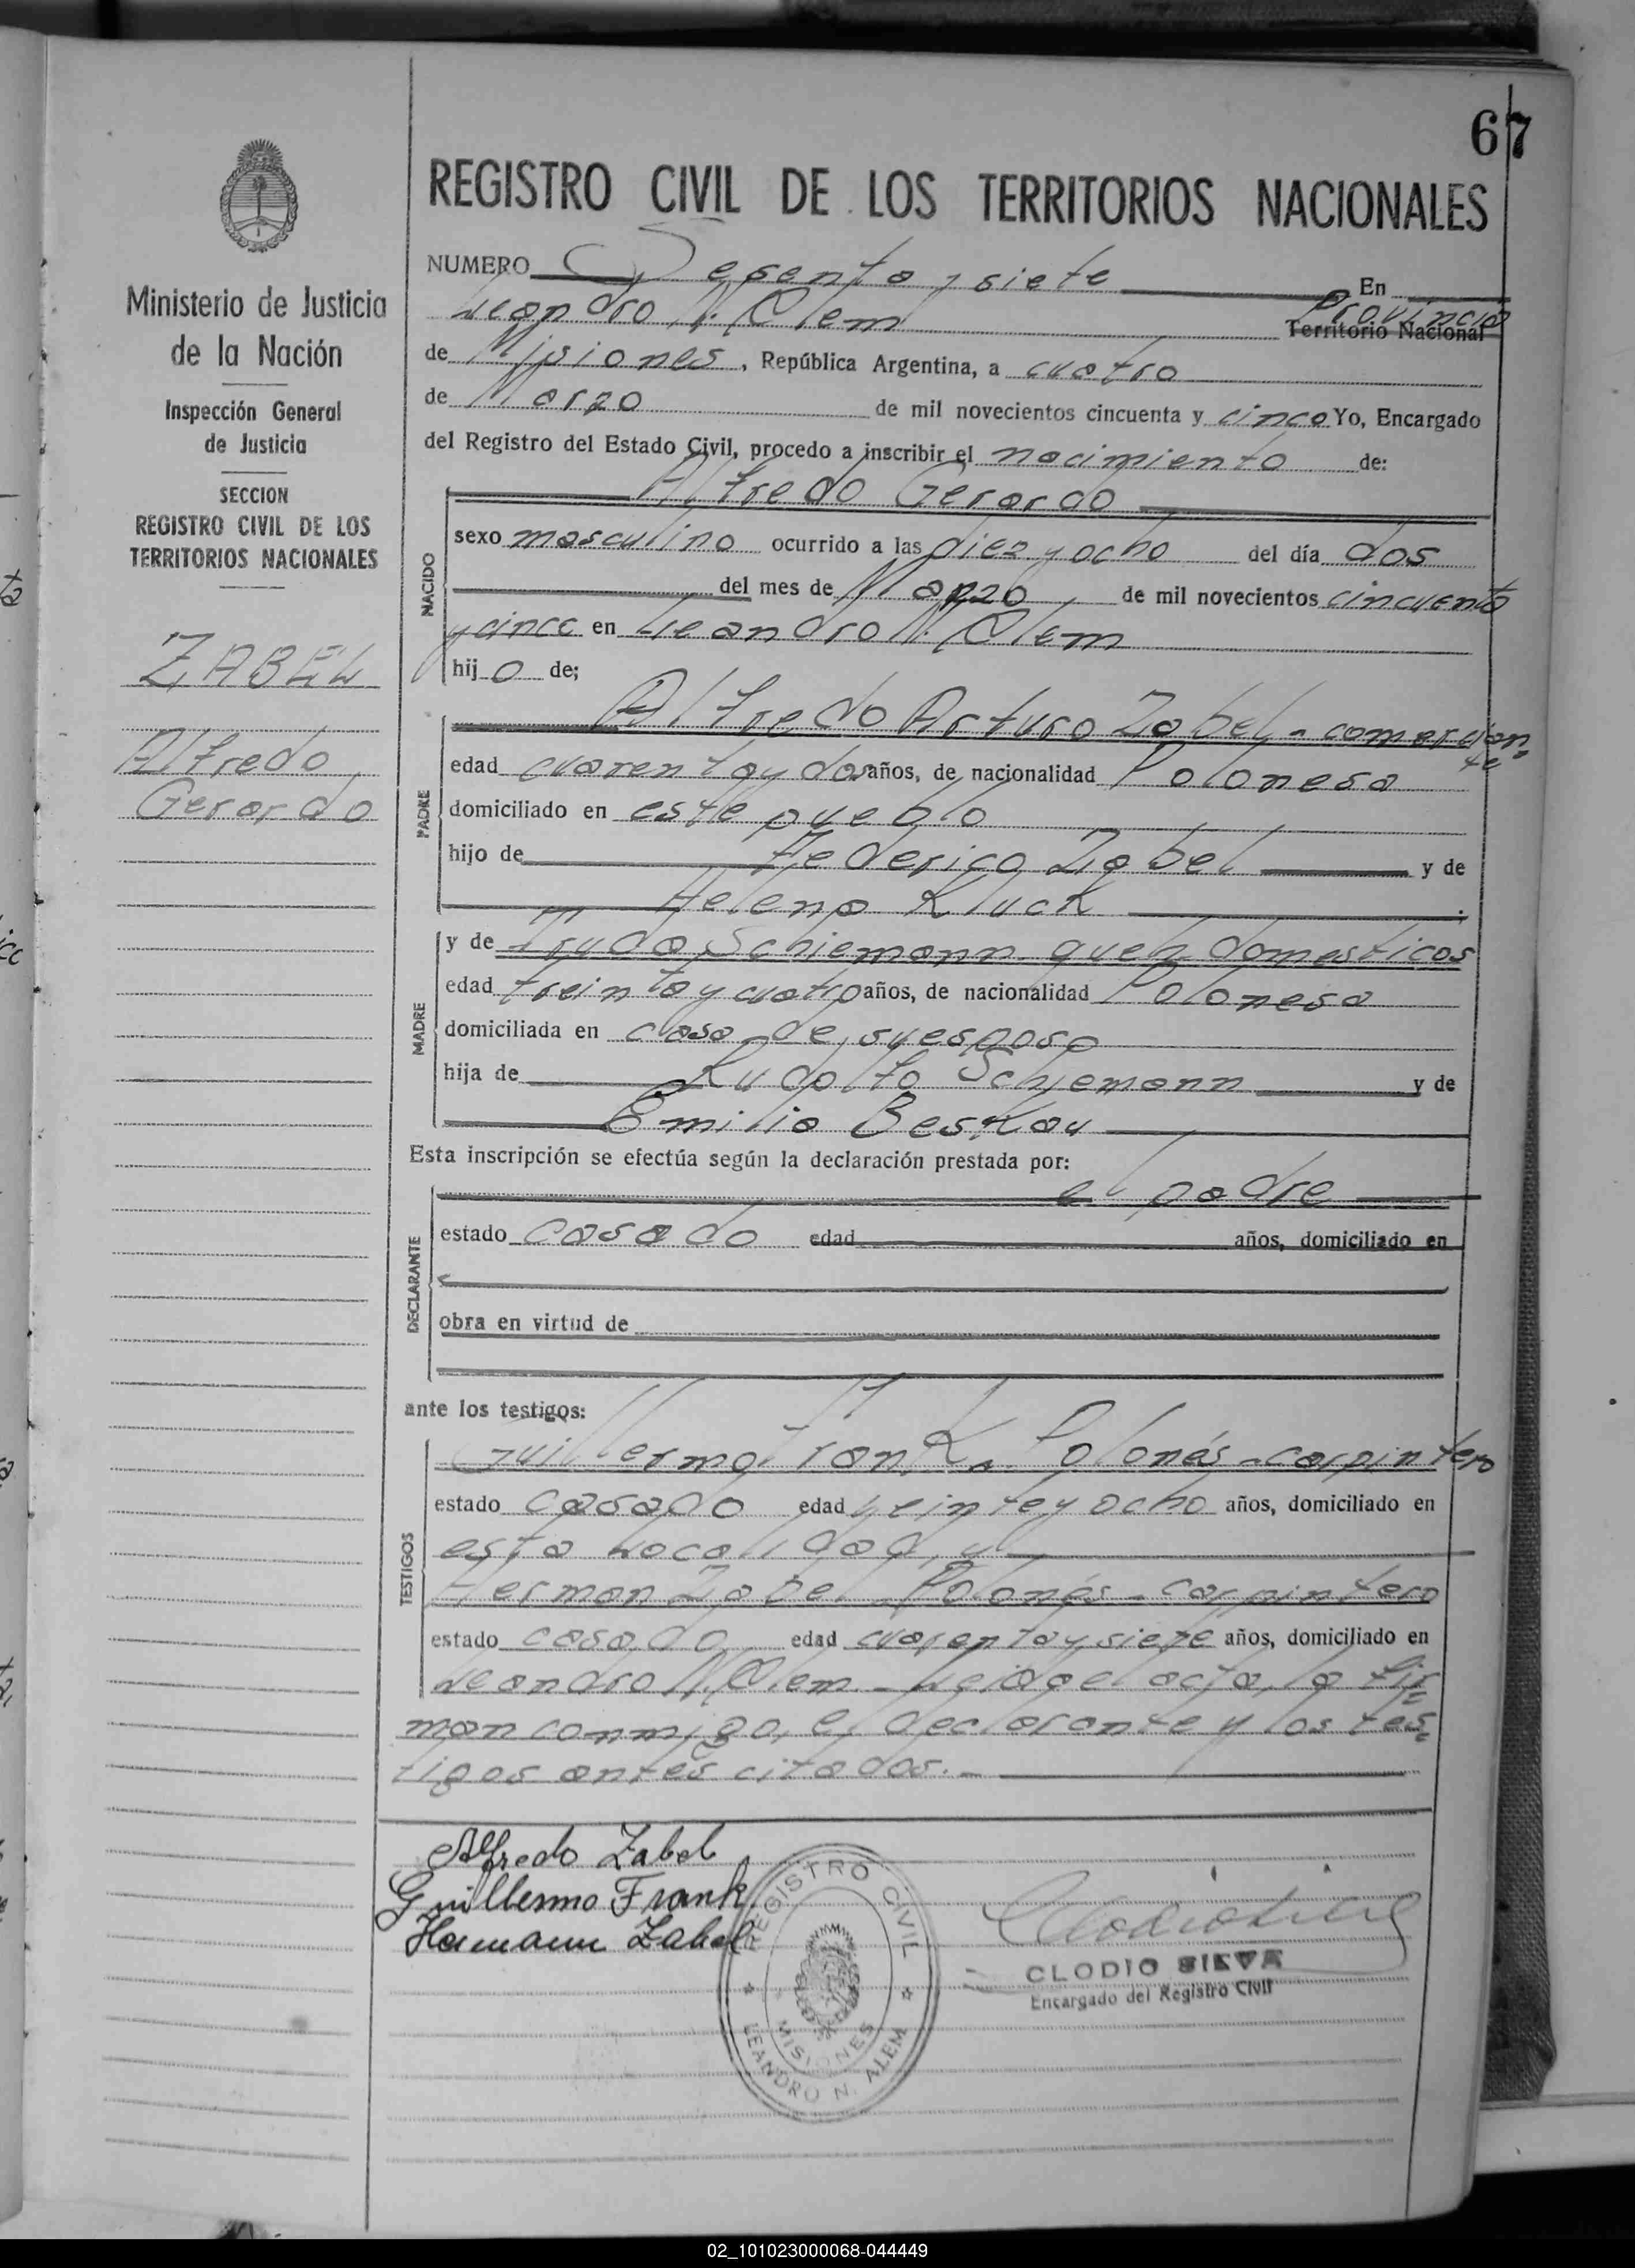 67
REGISTRO CIVIL DE LOS TERRITORIOS NACIONALES
Ministerio de Justicia
de la Nación
Inspección General
de Justicia
SECCION
REGISTRO CIVIL DE LOS
TERRITORIOS NACIONALES
ZABEL
Alfredo
Gerardo
NUMERO Sesenta y siete En
Leandro N. Alem Provincia Territorio Nacional
de Misiones, República Argentina, a cuatro
de Marzo de mil novecientos cincuenta y cinco Yo, Encargado
del Registro del Estado Civil, procedo a inscribir el nacimiento de:
NACIDO
Alfredo Gerardo
sexo masculino ocurrido a las diez y ocho del día dos
del mes de Marzo de mil novecientos cincuenta
y cinco en Leandro N. Alem
hijo de;
PADRE
Alfredo Arturo Zabel - comercian-
te
edad cuarenta y dos años, de nacionalidad Polonesa
domiciliado en este pueblo
hijo de Federico Zabel y de
Helena Kluck
MADRE
y de Truda Schiemann queh. domesticos
edad treinta y cuatro años, de nacionalidad Polonesa
domiciliada en casa de su esposo
hija de Rudolfo Schiemann y de
Emilia Beskau
Esta inscripción se efectúa según la declaración prestada por:
DECLARANTE
el padre
estado casado edad años, domiciliado en
obra en virtud de
ante los testigos:
TESTIGOS
Guillermo Frank. Polonés - carpintero
estado casado edad veinte y ocho años, domiciliado en
esta Localidad, y
Herman Zabel Polonés - carpintero
estado casado edad cuarenta y siete años, domiciliado en
Leandro N. Alem. - Leida el acta, la fir-
man conmigo, el declarante y los tes-
tigos antes citados. -
Alfredo Zabel
Guillermo Frank
Hermann Zabel
REGISTRO CIVIL
MISIONES
LEANDRO N. ALEM
CLODIO SILVA
Encargado del Registro Civil
02_101023000068-044449